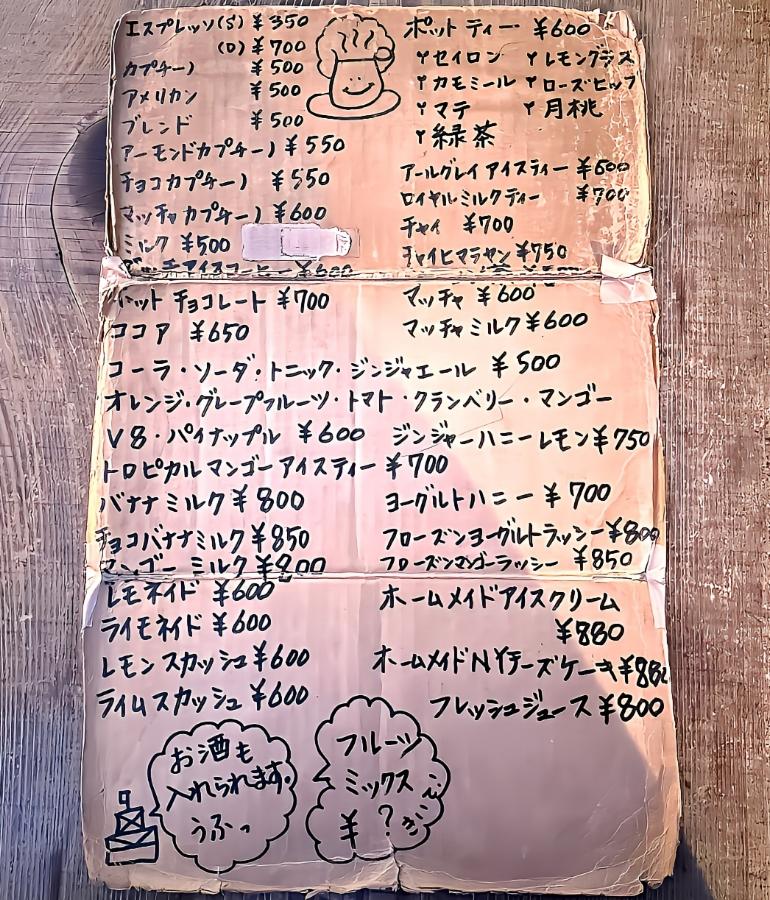 エスプレッソ(S) ¥350
(D) ¥700
カプチーノ ¥500
アメリカン ¥500
ブレンド ¥500
アーモンドカプチーノ ¥550
チョコカプチーノ ¥550
マッチャカプチーノ ¥600
ミルク ¥500
ダッチアイスコーヒー ¥600
ポットティー ¥600
セイロン レモングラス
カモミール ローズヒップ
マテ 月桃
緑茶
アールグレイアイスティー ¥600
ロイヤルミルクティー ¥700
チャイ ¥700
チャイヒマラヤン ¥750
ホットチョコレート ¥700
ココア ¥650
マッチャ ¥600
マッチャミルク ¥600
コーラ・ソーダ・トニック・ジンジャエール ¥500
オレンジ・グレープフルーツ・トマト・クランベリー・マンゴー
V8・パイナップル ¥600 ジンジャーハニーレモン ¥750
トロピカルマンゴーアイスティー ¥700
バナナミルク ¥800 ヨーグルトハニー ¥700
チョコバナナミルク ¥850 フローズンヨーグルトラッシー ¥800
マンゴーミルク ¥800 フローズンマンゴーラッシー ¥850
レモネイド ¥600
ライモネイド ¥600
レモンスカッシュ ¥600
ライムスカッシュ ¥600
ホームメイドアイスクリーム
¥880
ホームメイドNYチーズケーキ ¥880
フレッシュジュース ¥800
お酒も
入れられます。
うふっ
フルーツ
ミックス
¥?